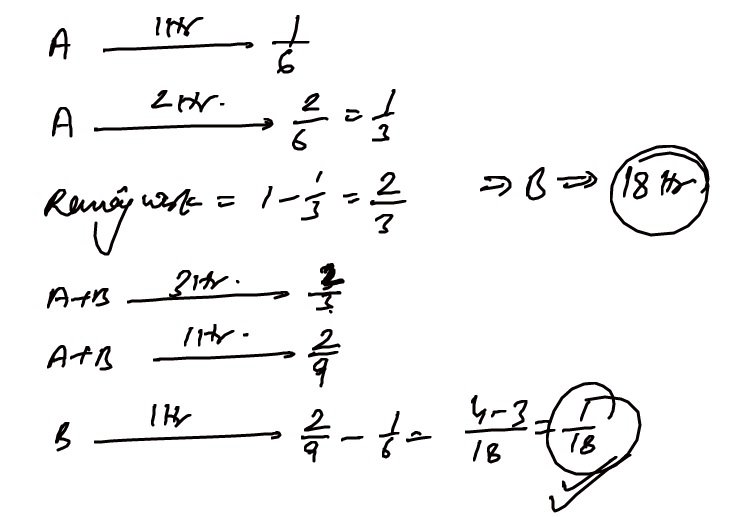 A 1Hr → 1/6
A 2Hr. → 2/6 = 1/3
Remaing work = 1 - 1/3 = 2/3 ⇒ B ⇒ 18 Hr
A+B 3Hr. → 2/3
A+B 1Hr. → 2/9
B 1Hr → 2/9 - 1/6 = 4-3/18 = 1/18